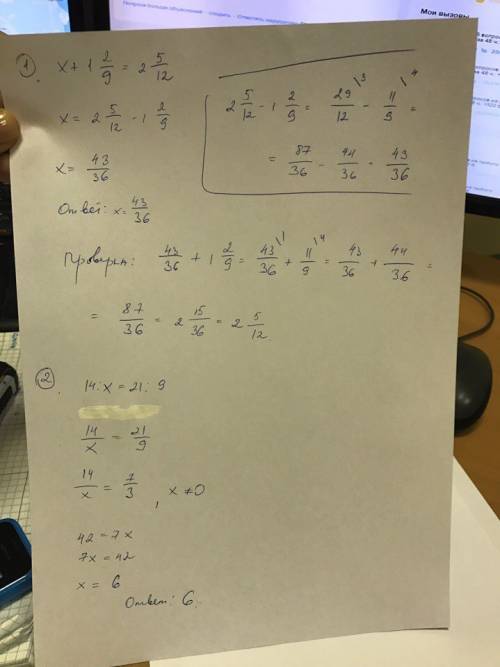 Мои вызовы
1. x + 1 2/9 = 2 5/12
x = 2 5/12 - 1 2/9
x = 43/36
Ответ: x = 43/36
2 5/12 - 1 2/9 = 29/12 \3 - 11/9 \4 =
= 87/36 - 44/36 = 43/36
Проверка: 43/36 + 1 2/9 = 43/36 \1 + 11/9 \4 = 43/36 + 44/36 =
= 87/36 = 2 15/36 = 2 5/12
2. 14 : x = 21 : 9
14/x = 21/9
14/x = 7/3, x ≠ 0
42 = 7x
7x = 42
x = 6
Ответ: 6.